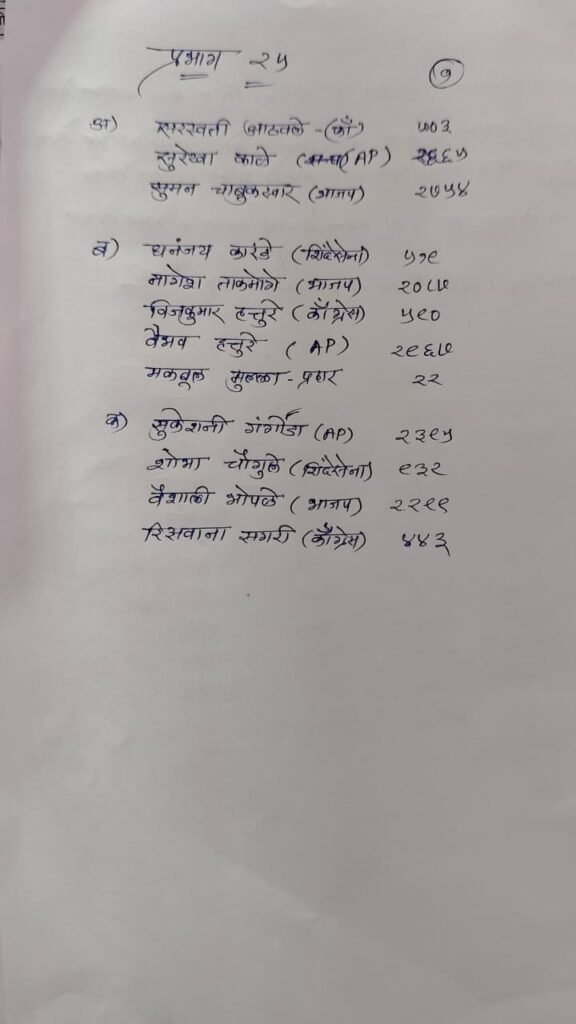 प्रभाग २५
७
अ) सरस्वती आठवले - (काँ) ७०३
सुरेखा काले (AP) २६६५
सुमन चाबुकस्वार (भाजप) २७५४
ब) धनंजय कारंडे (शिंदेसेना) ५१९
नागेश ताकमोगे (भाजप) २०८७
विजकुमार हत्तुरे (काँग्रेस) ५९०
वैभव हत्तुरे (AP) २९६७
मकबूल मुल्ला - प्रहार २२
क) सुकेशनी गंगोंडा (AP) २३९५
शोभा चौगुले (शिंदेसेना) ९३२
वैशाली भोपले (भाजप) २२९९
रिसवाना सगरी (काँग्रेस) ४४३